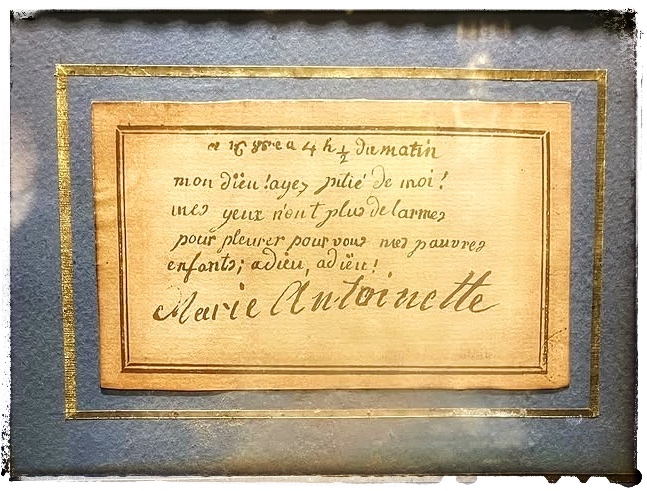 a 4 h ½ du matin
mon diëu! ayez pitié de moi!
mes yeux n'ont plus de larmes
pour pleurer pour vous mes pauvres
enfants; adieu, adiëu!
Marie Antoinette